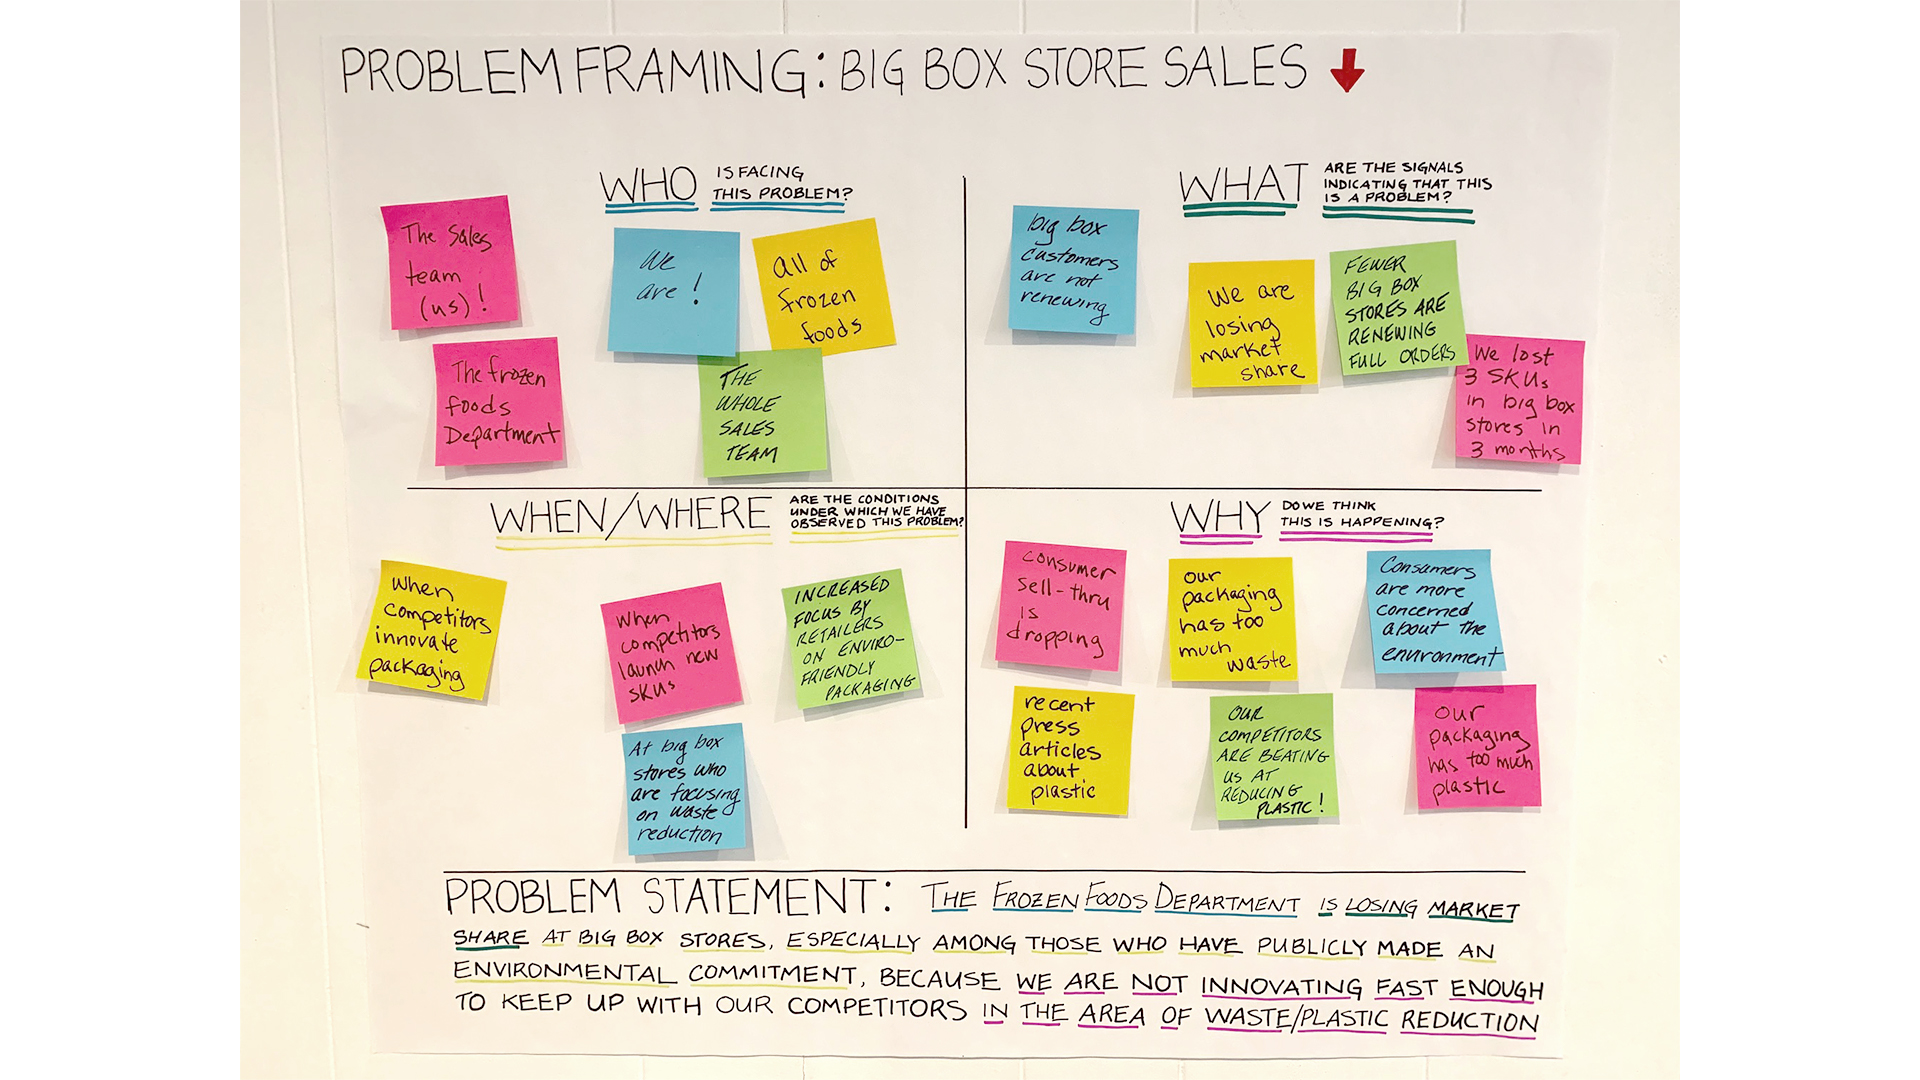 PROBLEM FRAMING: BIG BOX STORE SALES
WHO IS FACING
THIS PROBLEM?
The Sales
team
(us)!
We
are!
all of
frozen
foods
The frozen
foods
Department
THE
WHOLE
SALES
TEAM
WHAT ARE THE SIGNALS
INDICATING THAT THIS
IS A PROBLEM?
big box
customers
are not
renewing
We are
losing
market
share
FEWER
BIG BOX
STORES ARE
RENEWING
FULL ORDERS
We lost
3 SKUs
in big box
stores in
3 months
WHEN/WHERE ARE THE CONDITIONS
UNDER WHICH WE HAVE
OBSERVED THIS PROBLEM?
When
competitors
innovate
packaging
When
competitors
launch new
SKUs
INCREASED
FOCUS BY
RETAILERS
ON ENVIRO-
FRIENDLY
PACKAGING
At big box
stores who
are focusing
on waste
reduction
WHY DO WE THINK
THIS IS HAPPENING?
consumer
sell-thru
is
dropping
our
packaging
has too
much
waste
Consumers
are more
concerned
about the
environment
recent
press
articles
about
plastic
OUR
COMPETITORS
ARE BEATING
US AT
REDUCING
PLASTIC!
our
packaging
has too much
plastic
PROBLEM STATEMENT: THE FROZEN FOODS DEPARTMENT IS LOSING MARKET
SHARE AT BIG BOX STORES, ESPECIALLY AMONG THOSE WHO HAVE PUBLICLY MADE AN
ENVIRONMENTAL COMMITMENT, BECAUSE WE ARE NOT INNOVATING FAST ENOUGH
TO KEEP UP WITH OUR COMPETITORS IN THE AREA OF WASTE/PLASTIC REDUCTION